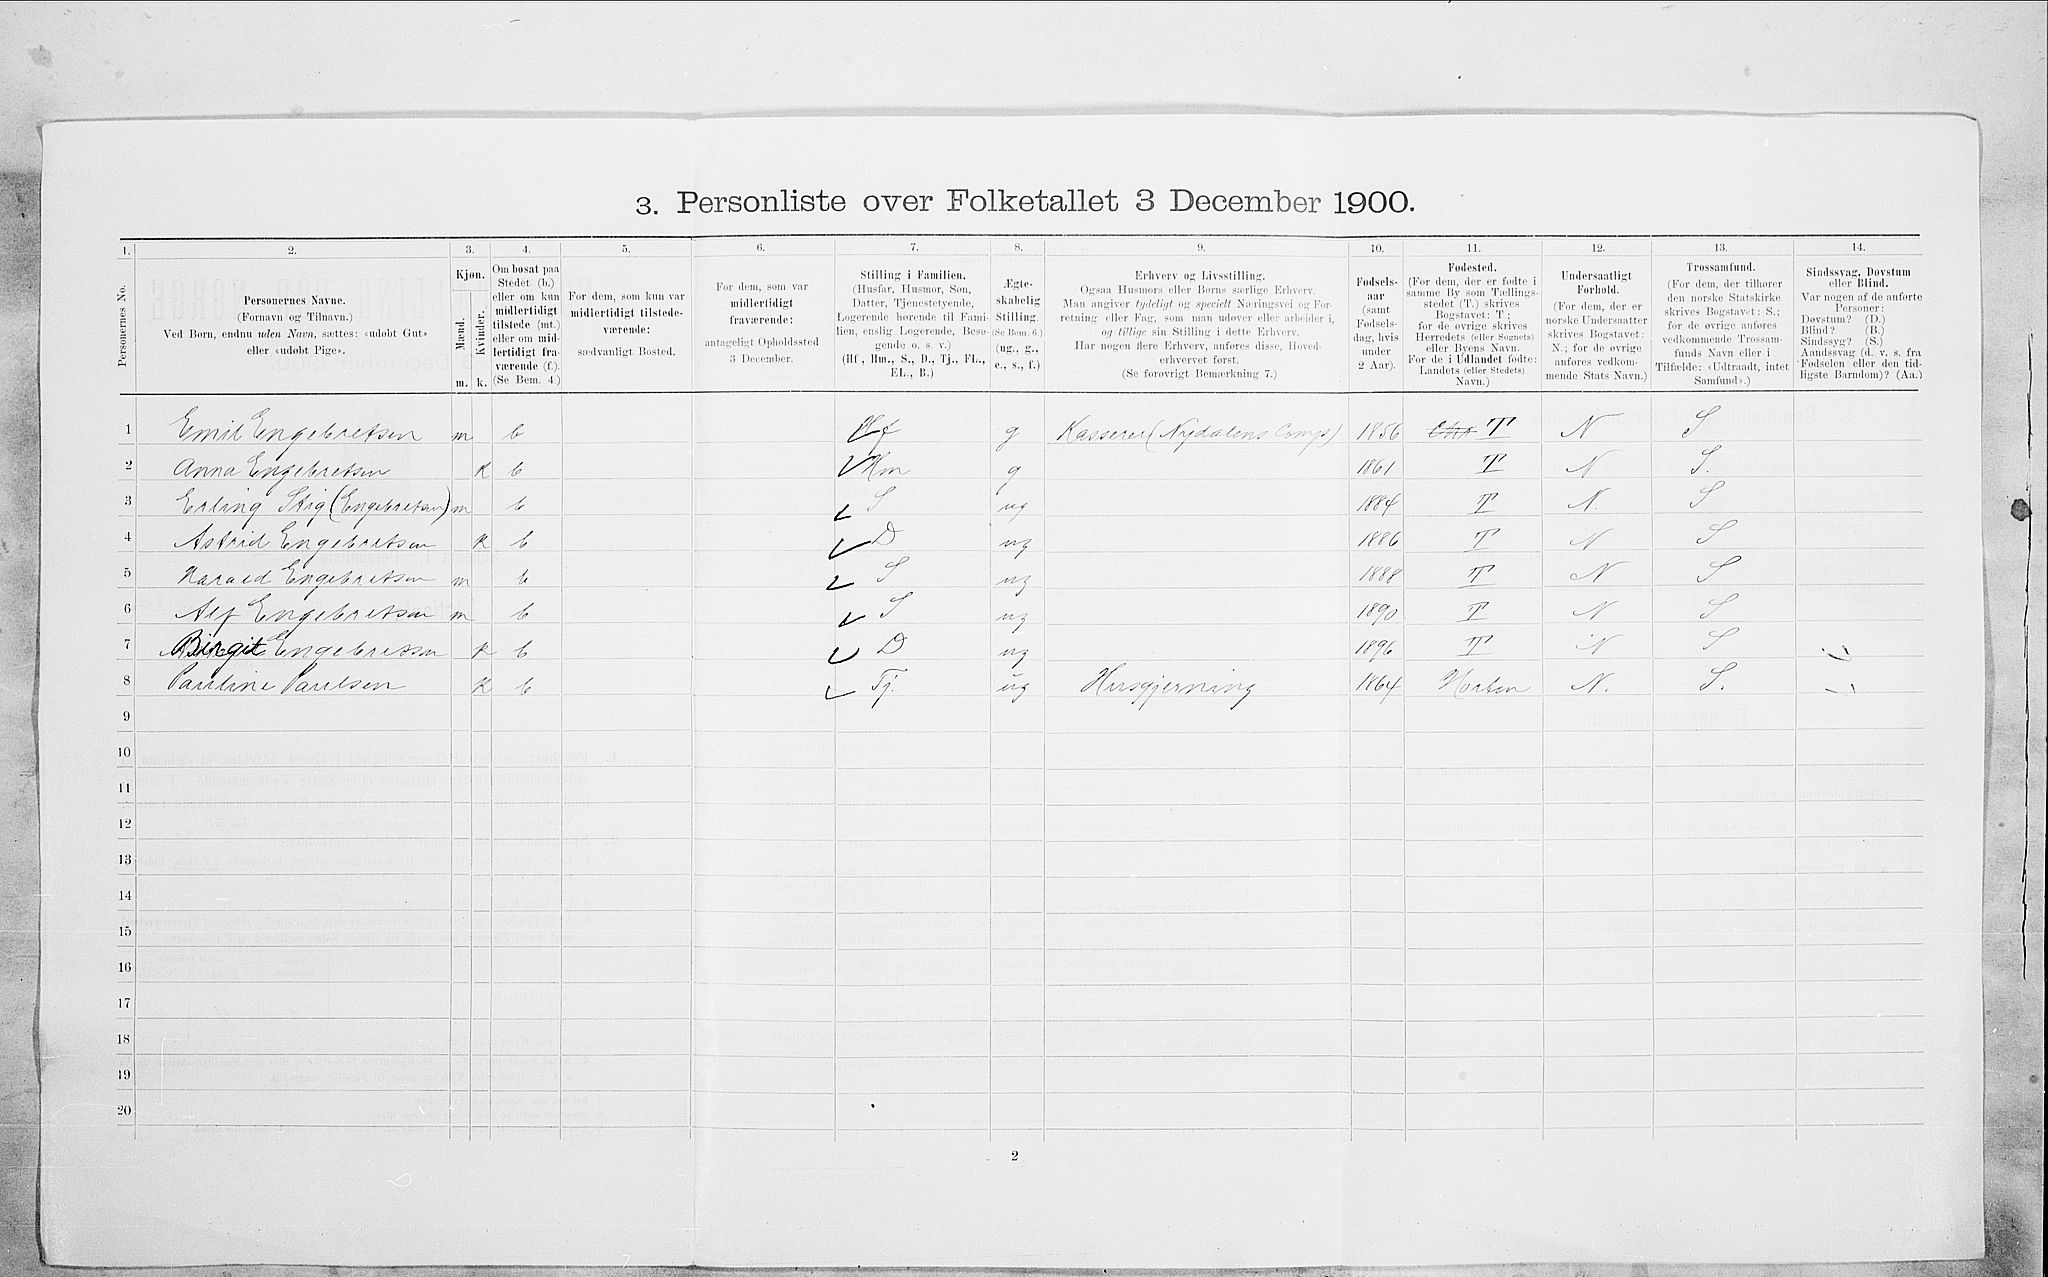 3. Personliste over Folketallet 3 December 1900.
1. 2. 3. 4. 5. 6. 7. 8. 9. 10. 11. 12. 13. 14.
Personernes No.
Personernes Navne.
(Fornavn og Tilnavn.)
Ved Børn, endnu uden Navn, sættes: «udøbt Gut»
eller «udøbt Pige».
Kjøn.
Mænd.
Kvinder.
m. k.
Om bosat paa
Stedet (b.)
eller om kun
midlertidigt
tilstede (mt.)
eller om mid-
lertidigt fra-
værende (f.)
(Se Bem. 4.)
For dem, som kun var
midlertidigt tilstede-
værende:
sædvanligt Bosted.
For dem, som var
midlertidigt
fraværende:
antageligt Opholdssted
3 December.
Stilling i Familien.
(Husfar, Husmor, Søn,
Datter, Tjenestetyende,
Logerende hørende til Fami-
lien, enslig Logerende, Besø-
gende o. s. v.)
(Hf, Hm., S., D., Tj., FL.,
EL., B.)
Ægte-
skabelig
Stilling.
(Se Bem. 6.)
(ug., g.,
e., s., f.)
Erhverv og Livsstilling.
Ogsaa Husmors eller Børns særlige Erhverv.
Man angiver tydeligt og specielt Næringsvei og For-
retning eller Fag, som man udøver eller arbeider i,
og tillige sin Stilling i dette Erhverv.
Har nogen flere Erhverv, anføres disse, Hoved-
erhvervet først.
(Se forøvrigt Bemærkning 7.)
Fødsels-
aar
(samt
Fødsels-
dag, hvis
under
2 Aar).
Fødested.
(For dem, der er fødte i
samme By som Tællings-
stedet (T.) skrives
Bogstavet: T;
for de øvrige skrives
Herredets (eller Sognets)
eller Byens Navn.
For de i Udlandet fødte:
Landets (eller Stedets)
Navn.)
Undersaatligt
Forhold.
(For dem, der er
norske Undersaatter
skrives Bogstavet:
N.; for de øvrige
anføres vedkom-
mende Stats Navn.)
Trossamfund.
(For dem, der tilhører
den norske Statskirke
skrives Bogstavet: S.;
for de øvrige anføres
vedkommende Trossam-
funds Navn eller i
Tilfælde: «Udtraadt, intet
Samfund».)
Sindssvag, Døvstum
eller Blind.
Var nogen af de anførte
Personer:
Døvstum? (D.)
Blind? (B.)
Sindssyg? (S.)
Aandssvag (d. v. s. fra
Fødselen eller den tid-
ligste Barndom)? (Aa.)
1 Emil Engebretsen m b Hf g Kasserer (Nydalens Comp) 1856 Chra T N S
2 Anna Engebretsen k b Hm g 1861 T N S.
3 Erling Stig (Engebretsen) m b S ug 1884 T N. S
4 Astrid Engebretsen k b D ug 1886 T N S
5 Harald Engebretsen m b S ug 1888 T N S
6 Alf Engebretsen m b S ug 1890 T N S
7 Birgit Engebretsen k b D ug 1896 T N S
8 Pauline Paulsen k b Tj. ug Husgjerning 1864 Horten N. S.
9
10
11
12
13
14
15
16
17
18
19
20
2